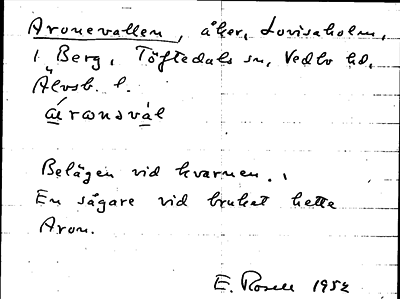 Aronevallen, åker, Lovisaholm,
i Berg, Töftedals sn, Vedbo hd,
Älvsb. l.
á̱rɷnsvà̱l
Belägen vid kvarnen.
En sågare vid bruket hette
Aron.
E. Rosell 1952